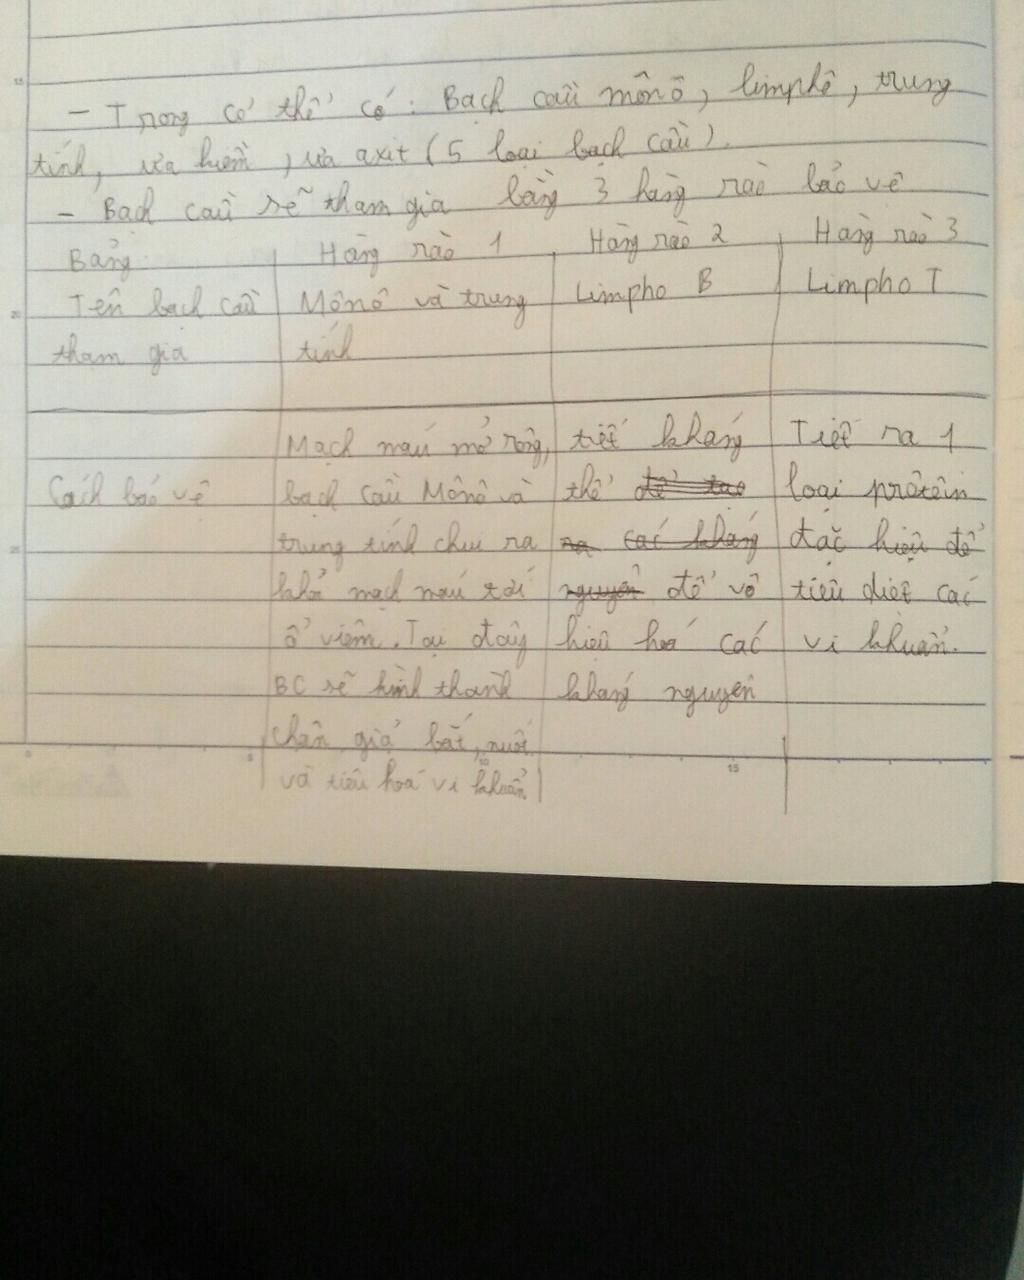 - Trong cơ thể có: Bạch cầu mônô, limphô, trung
tính, ưa kiềm, ưa axit (5 loại bạch cầu).
- Bạch cầu sẽ tham gia bằng 3 hàng rào bảo vệ
Bảng: Hàng rào 1 Hàng rào 2 Hàng rào 3
Tên bạch cầu Mônô và trung Limpho B Limpho T
tham gia tính
Mạch máu mở rộng, tiết kháng Tiết ra 1
Cách bảo vệ bạch cầu Mônô và thể để tạo loại prôtêin
trung tính chui ra ra các kháng đặc hiệu để
khỏi mạch máu tới nguyên để vô tiêu diệt các
ổ viêm. Tại đây hiệu hoá các vi khuẩn.
BC sẽ hình thành kháng nguyên
chân giả bắt, nuốt
và tiêu hoá vi khuẩn
15
20
25
0 5 10 15